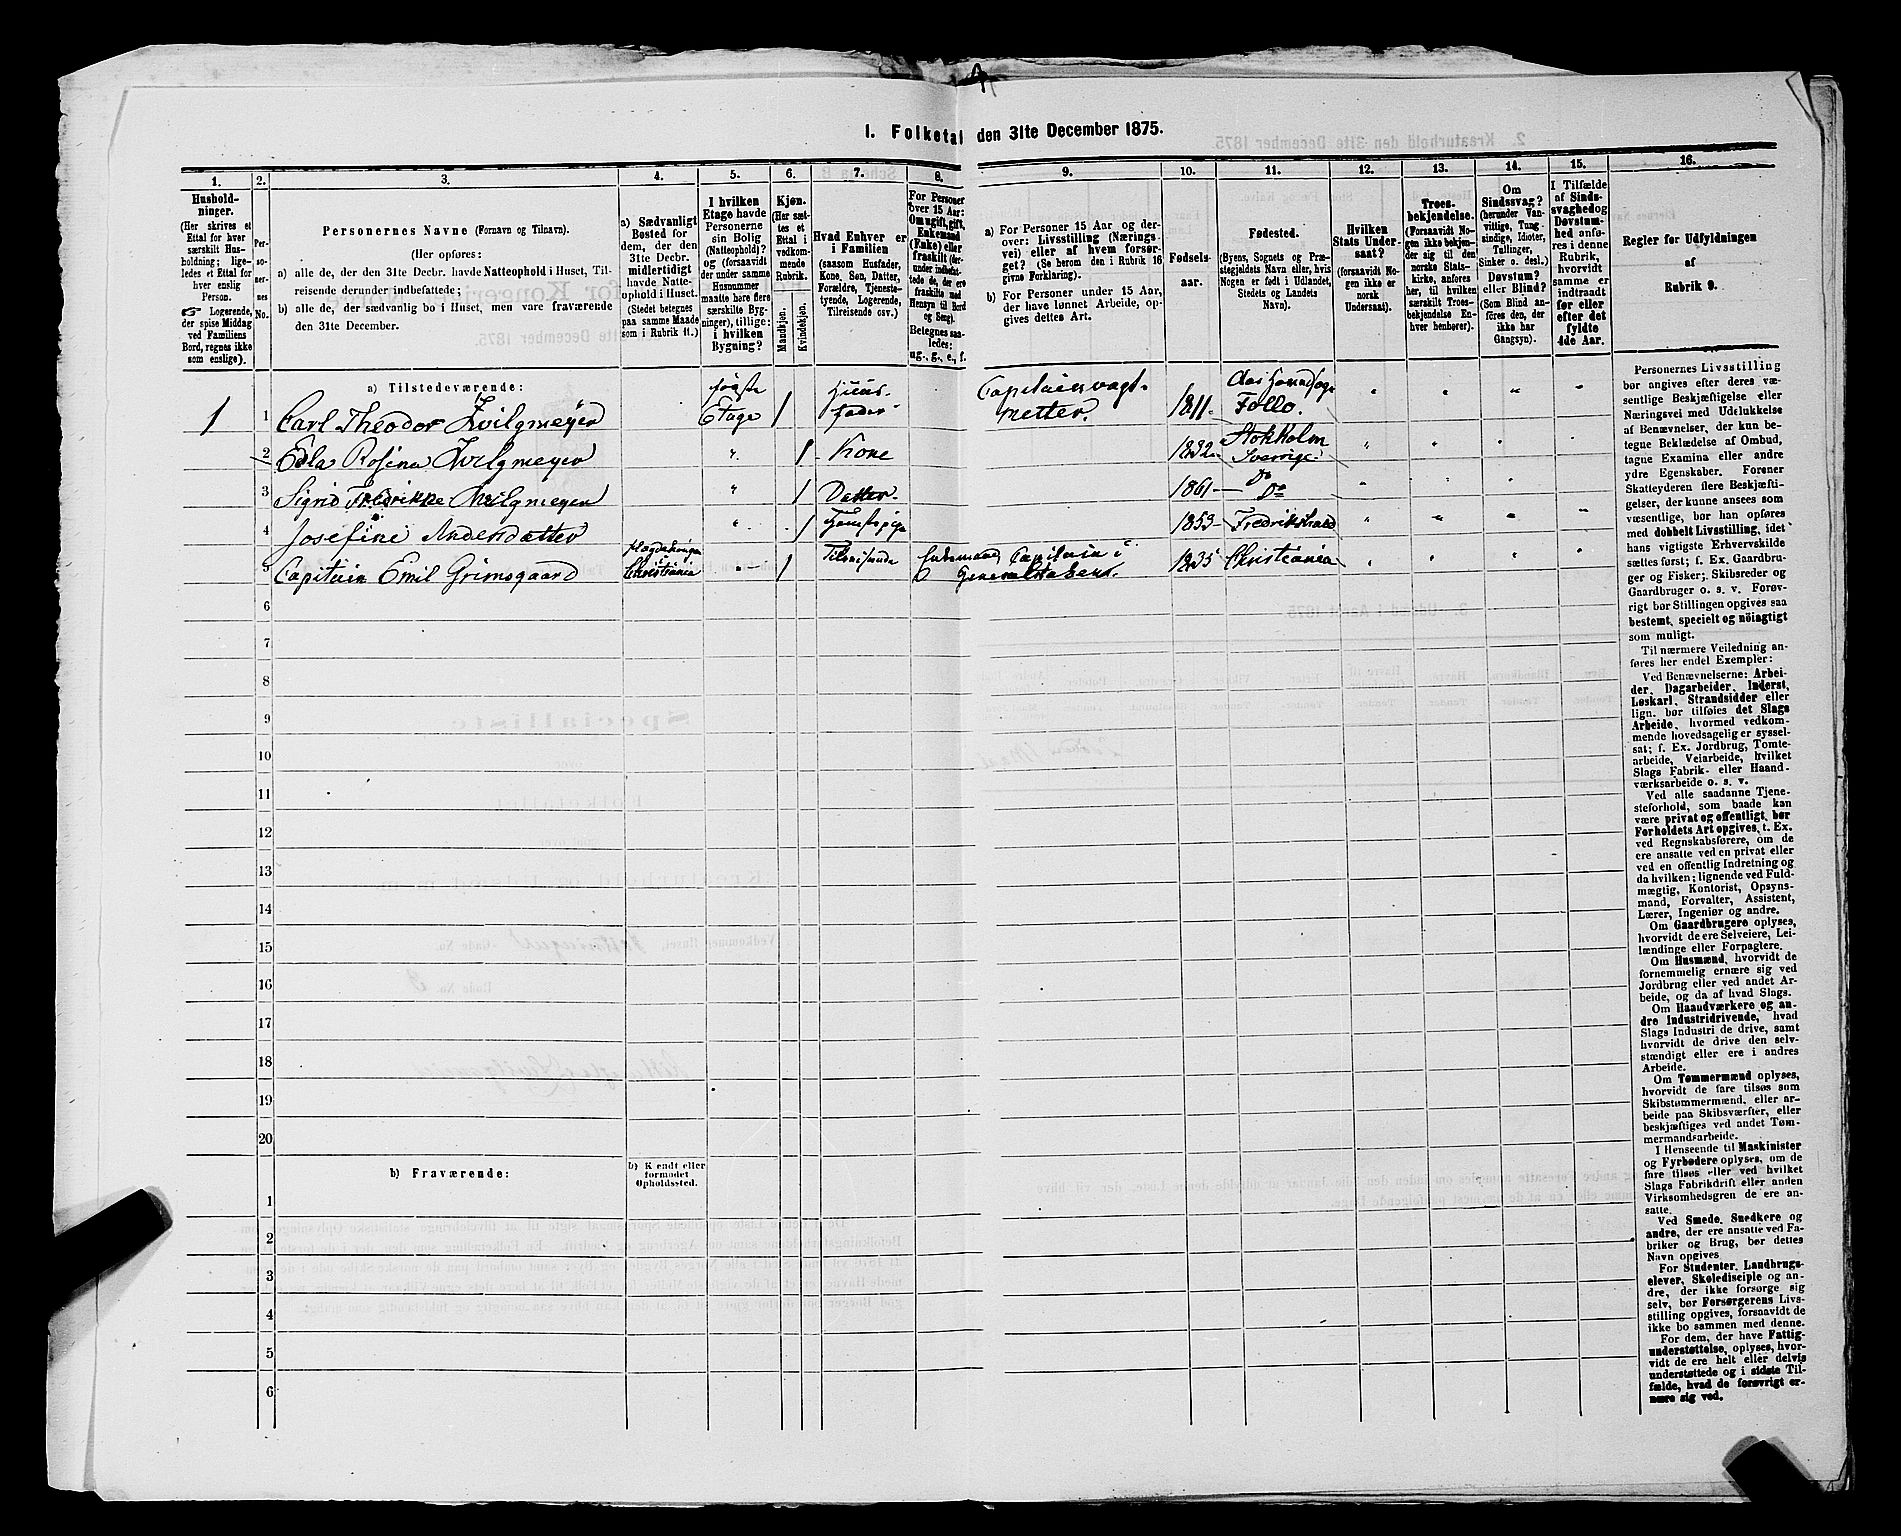 I. Folketal den 31te December 1875.
1.
2.
3.
4.
5.
6.
7.
8.
9.
10.
11.
12.
13.
14.
15.
16.
Hushold-
ninger.
(Her skrives et
Ettal for hver
særskilt Hus-
holdning; lige-
ledes et Ettal for
hver enslig
Person.
☞ Logerende,
der spise Middag
ved Familiens
Bord, regnes ikke
som enslige).
Per-
so-
ner-
nes
No.
Personernes Navne (Fornavn og Tilnavn).
(Her opføres:
a) alle de, der den 31te Decbr. havde Natteophold i Huset, Til-
reisende derunder indbefattede;
b) alle de, der sædvanlig bo i Huset, men vare fraværende
den 31te December.
a) Sædvanligt
Bosted for
dem, der den
31te Decbr.
midlertidigt
havde Natte-
ophold i Huset.
(Stedet betegnes
paa samme Maade
som i Rubrik 11.)
I hvilken
Etage havde
Personerne
sin Bolig
(Natteophold)?
og (forsaavidt
der under samme
Husnummer
maatte høre flere
særskilte Byg-
ninger), tillige:
i hvilken
Bygning?
Kjøn.
(Her sæt-
tes et
Ettal i
vedkom-
mende
Rubrik.
Mandkjøn.
Kvindekjøn.
Hvad Enhver er
i Familien
(saasom Husfader,
Kone, Søn, Datter,
Forældre, Tjeneste-
tyende, Logerende,
Tilreisende osv.)
For Personer
over 15 Aar:
Om ugift, gift,
Enkemand
(Enke) eller
fraskilt (der-
under indbefat-
tede de, der ere
fraskilte med
Hensyn til Bord
og Seng).
Betegnes saa-
ledes:
ug., g., e., f.
a) For Personer 15 Aar og der-
over: Livsstilling (Nærings-
vei) eller af hvem forsør-
get? (Se herom den i Rubrik 16
givne Forklaring).
b) For Personer under 15 Aar,
der have lønnet Arbeide, op-
gives dettes Art.
Fødsels-
aar.
Fødested.
(Byens, Sognets og Præ-
stegjeldets Navn eller, hvis
Nogen er født i Udlandet,
Stedets og Landets
Navn).
Hvilken
Stats Under-
saat?
(forsaavidt No-
gen ikke er
norsk
Undersaat).
Troes-
bekjendelse.
(Forsaavidt No-
gen ikke bekjen-
der sig til den
norske Stats-
kirke, anføres
her, til hvilken
særskilt Troes-
bekjendelse En-
hver henhører).
Om
Sindssvag?
(herunder Van-
vittige, Tung-
sindige, Idioter,
Tullinger,
Sinker o. desl.)
Døvstum?
eller Blind?
(Som Blind an-
føres den, der
ikke har
Gangsyn).
I Tilfælde
af Sinds-
svaghed og
Døvstum-
hed anfø-
res i denne
Rubrik,
hvorvidt
samme er
indtraadt
før eller
efter det
fyldte
4de Aar.
Regler for Udfyldningen
af
Rubrik 9.
a) Tilstedeværende:
1 1 Carl Theodor Zwilgmeyer første Etage 1 Huus-fader 1811 Follo.
2 Edla Rosina Zwilgmeyer " 1 Kone 1832 Stokholm Sverrige " " " "
3 Sigrid Fredrikke Zwilgmeyer " 1 Datter 1861 Do Do " " " "
4 Josefine Andersdatter " 1 1853 Fredrikshald " " " "
5 Capitain Emil Grimsgaard Christiania " 1 Tilreisende Enkemand Capitain i Generalstaben. 1835 Christiania " " " "
6
7
8
9
10
11
12
13
14
15
16
17
18
19
20
b) Fraværende:
b) Kjendt eller
formodet
Opholdssted.
1
2
3
4
5
6
Personernes Livsstilling
bør angives efter deres væ-
sentlige Beskjæftigelse eller
Næringsvei med Udelukkelse
af Benævnelser, der kun be-
tegne Beklædelse af Ombud,
tagne Examina eller andre
ydre Egenskaber. Forener
Skatteyderen flere Beskjæfti-
gelser, der kunne ansees som
væsentlige, bør han opføres
med dobbelt Livsstilling, idet
hans vigtigste Erhvervskilde
sættes først; f. Ex. Gaardbru-
ger og Fisker; Skibsreder og
Gaardbruger o. s. v. Forøv-
rigt bør Stillingen opgives saa
bestemt, specielt og nöiagtigt
som muligt.
Til nærmere Veiledning an-
føres her endel Exempler:
Ved Benævnelserne: Arbei-
der, Dagarbeider, Inderst,
Løskarl, Strandsidder eller
lign. bør tilføies det Slags
Arbeide, hvormed vedkom-
mende hovedsagelig er syssel-
sat; f. Ex. Jordbrug, Tomte-
arbeide, Veiarbeide, hvilket
Slags Fabrik- eller Haand-
værksarbeide o. s. v.
Ved alle saadanne Tjene-
steforhold, som baade kan
være privat og offentligt, bør
Forholdets Art opgives, t. Ex.
ved Regnskabsførere, om de
ere ansatte ved en privat eller
ved en offentlig Indretning og
da hvilken; lignende ved Fuld-
mægtig, Kontorist, Opsyns-
mand, Forvalter, Assistent,
Lærer, Ingeniør og andre.
Om Gaardbrugere oplyses,
hvorvidt de ere Selveiere, Lei-
lændinge eller Forpagtere.
Om Husmænd, hvorvidt de
fornemmelig ernære sig ved
Jordbrug eller ved andet Ar-
beide, og da af hvad Slags.
Om Haandværkere og an-
dre Industridrivende, hvad
Slags Industri de drive, samt
hvorvidt de drive den selv-
stændigt eller ere i andres
Arbeide.
Om Tømmermænd oplyses,
hvorvidt de fare tilsøs som
Skibstømmermænd, eller ar-
beide paa Skibsværfter, eller
beskjæftiges ved andet Tøm-
mermandsarbeide.
I Henseende til Maskinister
og Fyrbødere oplyses, om de
fare tilsøs eller ved hvilket
Slags Fabrikdrift eller anden
Virksomhedsgren de ere an-
satte.
Ved Smede, Snedkere og
andre, der ere ansatte ved Fa-
briker og Brug, bør dettes
Navn opgives
For Studenter, Landbrugs-
elever, Skoledisciple og an-
dre, der ikke forsørge sig
selv, bør Forsørgerens Livs-
stilling opgives, forsaavidt de
ikke bo sammen med denne.
For dem, der have Fattig-
understøttelse, oplyses, hvor-
vidt de ere helt eller delvis
understøttede og i sidste Til-
fælde, hvad de forøvrigt er-
nære sig ved.